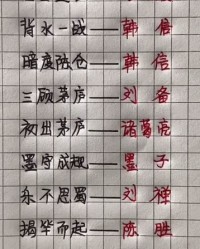 背水一战——韩信
暗度陈仓——韩信
三顾茅庐——刘备
初出茅庐——诸葛亮
墨守成规——墨子
乐不思蜀——刘禅
揭竿而起——陈胜